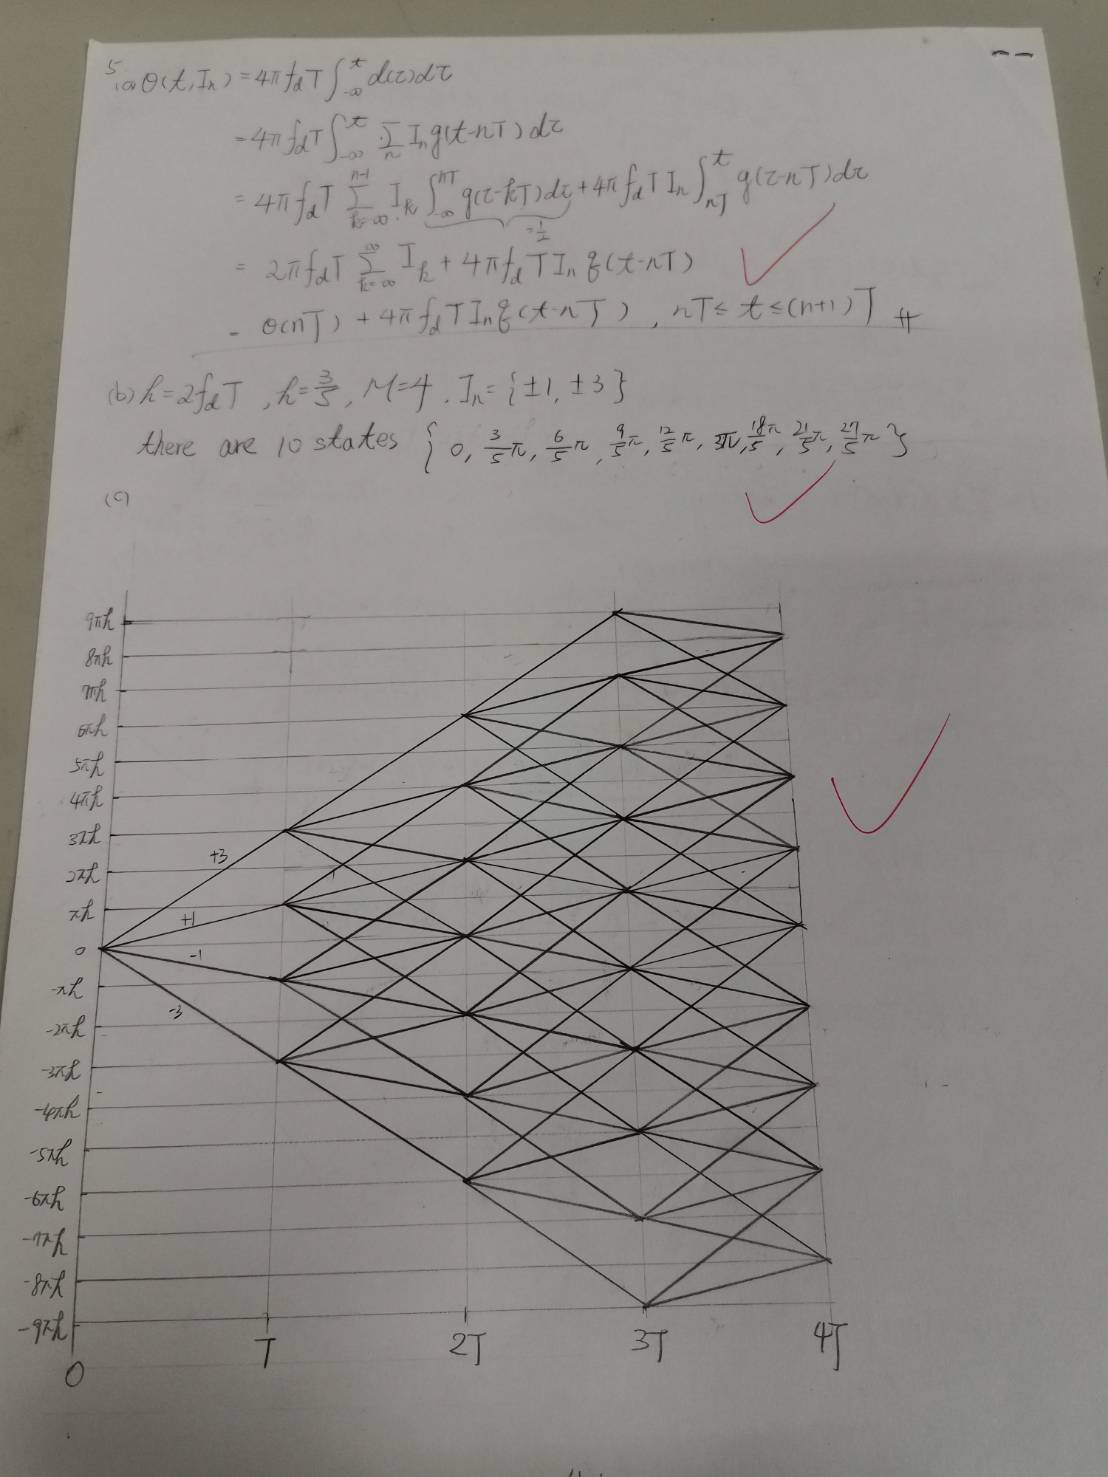 5.
(a) θ(t, Iₙ) = 4πf_dT ∫_{-∞}^{t} d(τ)dτ
= 4πf_dT ∫_{-∞}^{t} Σ_n Iₙg(t-nT) dτ
= 4πf_dT Σ_{k=-∞}^{n-1} I_k ∫_{-∞}^{nT} g(τ-kT)dτ + 4πf_dT Iₙ ∫_{nT}^{t} g(τ-nT)dτ
=1/2
= 2πf_dT Σ_{k=-∞}^{∞} I_k + 4πf_dT Iₙ q(t-nT)
= θ(nT) + 4πf_dT Iₙ q(t-nT), nT ≤ t ≤ (n+1)T #
(b) h=2f_dT, h=3/5, M=4, Iₙ={±1, ±3}
there are 10 states {0, 3/5π, 6/5π, 9/5π, 12/5π, 3π, 18/5π, 21/5π, 27/5π}
(c)
9πh
8πh
7πh
6πh
5πh
4πh
3πh
+3
2πh
πh
+1
0
-1
-πh
-3
-2πh
-3πh
-4πh
-5πh
-6πh
-7πh
-8πh
-9πh
0 T 2T 3T 4T